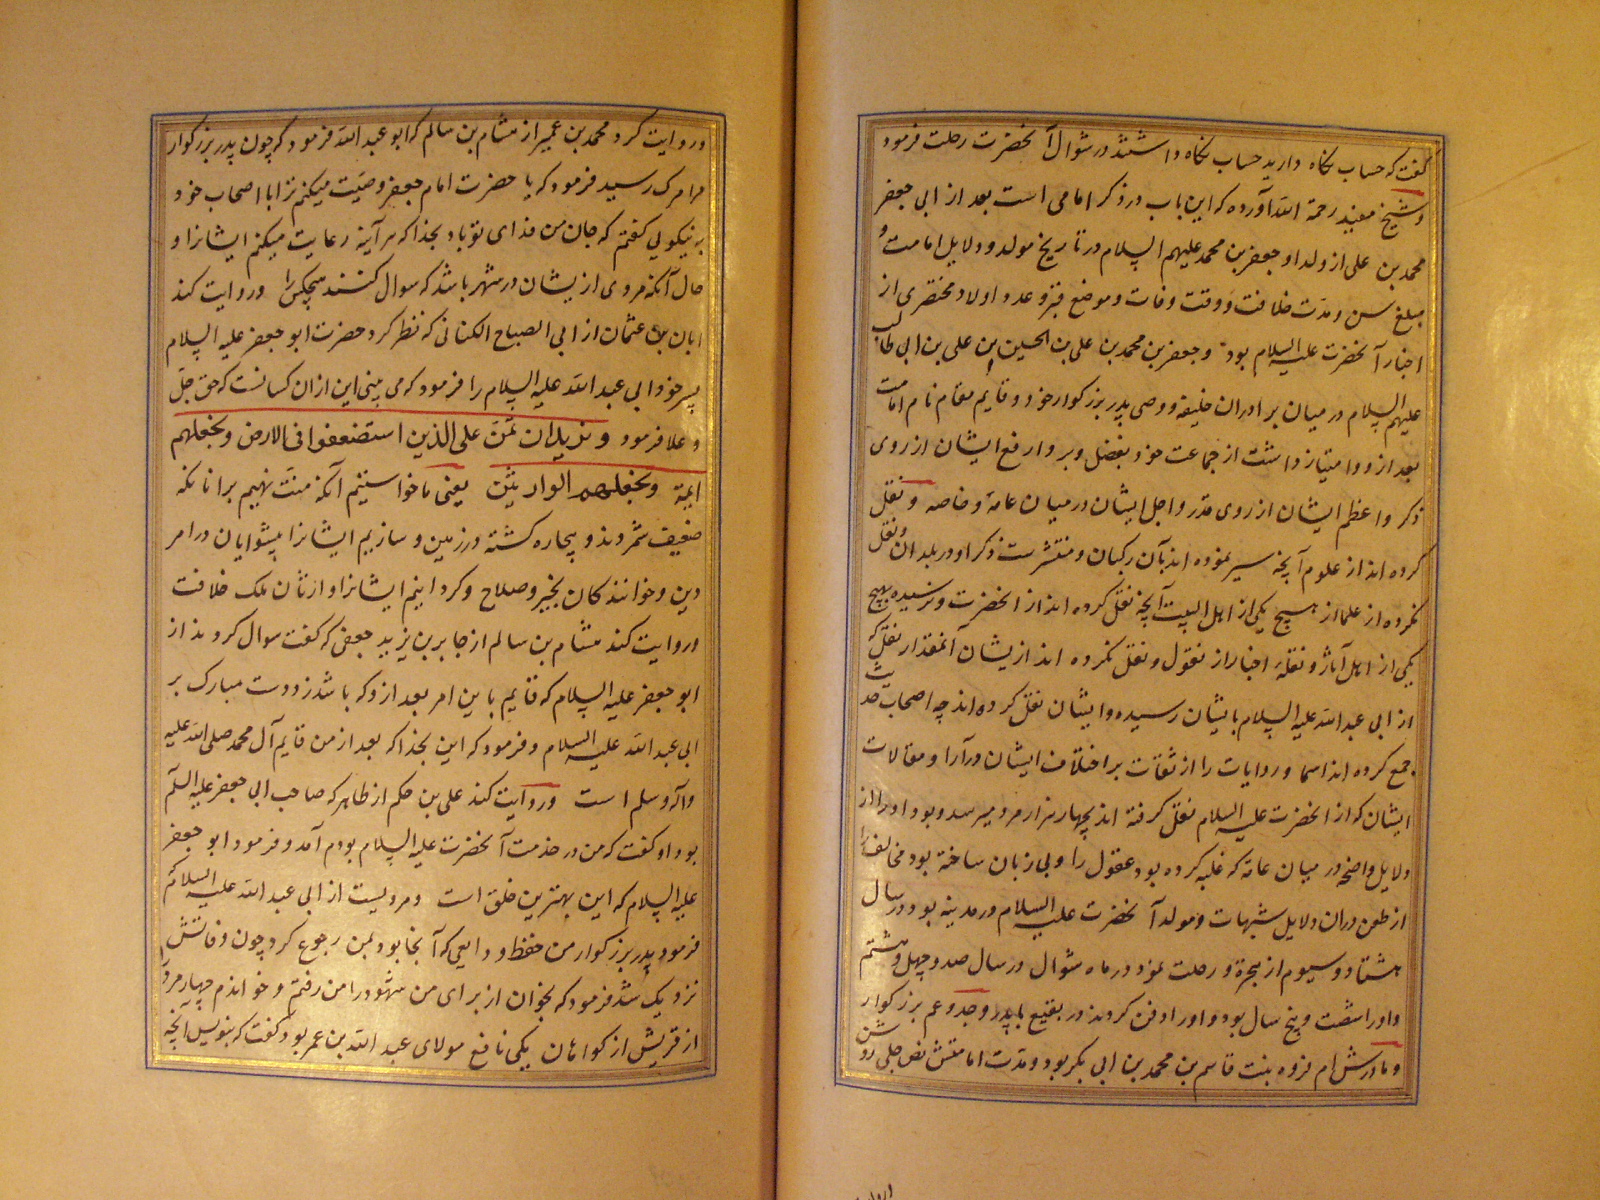 گفت که حساب نگاه دارید حساب نگاه داشتند در شوال آنحضرت رحلت فرمود
و شیخ مفید رحمة الله آورده که این باب در ذکر امامی است بعد از ابی جعفر
محمد بن علی از ولد او جعفر بن محمد علیهم السلام در تاریخ مولد و دلایل امامت و
مبلغ سن و مدت خلافت و وقت وفات و موضع قبر و عدد اولاد و مختصری از
اخبار آنحضرت علیه السلام بود و جعفر بن محمد بن علی بن الحسین بن علی بن ابی طالب
علیهم السلام در میان برادران خلیفه و وصی پدر بزرگوار خود و قایم مقام نام امامت
بعد ازو و امتیاز داشت از جماعت خود بفضل و بر و ارفع ایشان از روی
ذکر و اعظم ایشان از روی قدر و اجل ایشان در میان عامه و خاصه و نقل
کرده اند از علوم آنچه سیر نموده اند بآن رکبان و منتشرست ذکر او در بلدان و نقل
نکرده از علما از هیچ یکی از اهل البیت آنچه نقل کرده اند از آنحضرت و نرسیده بهیچ
یکی از اهل آثار و نقله اخبار از نقول و نقل نکرده اند ازیشان آنمقدار نقل که
از ابی عبد الله علیه السلام بایشان رسیده و ایشان نقل کرده اند چه اصحاب حدیث
جمع کرده اند اسما و روایات را از ثقات بر اختلاف ایشان در آرا و مقالات
ایشان که از آنحضرت علیه السلام نقل گرفته اند بچهار هزار مرد میرسد و بود او را از
دلایل واضحه در میان عامه که غلبه کرده بود عقول را و بی زبان ساخته بود مخالف را
از طعن در آن دلایل شبهات و مولد آنحضرت علیه السلام در مدینه بود در سال
هشتاد و سیوم از هجرة و رحلت نمود در ماه شوال در سال صد و چهل و هشتم
و او را شصت و پنج سال بود و او را دفن کردند در بقیع با پدر و جد و عم بزرگوار
و مادرش ام فروه بنت قاسم بن محمد بن ابی بکر بود و مدت امامتش نص جلی روشن
و روایت کرد محمد بن عمیر از هشام بن سالم که ابو عبد الله فرمود که چون پدر بزرگوار
مرا مرگ رسید فرمود که یا حضرت امام جعفر وصیت میکنم ترا با اصحاب خود
به نیکویی گفتم که جان من فدای تو باد بخدا که هر آینه رعایت میکنم ایشانرا و
حال آنکه مردی ازیشان در شهر باشد که سوال نکنند هیچکس را و روایت کند
ابان بن عثمان از ابی الصباح الکنانی که نظر کرد حضرت ابو جعفر علیه السلام
پسر خود ابی عبد الله علیه السلام را فرمود که می بینی این از آن کسانست که حق جل
و علا فرمود و نرید ان نمن علی الذین استضعفوا فی الارض و نجعلهم
ایمة و نجعلهم الوارثین یعنی ما خواستیم آنکه منت نهیم بر آنانکه
ضعیف شمردند و بیچاره گشته در زمین و سازیم ایشانرا پیشوایان در امر
دین و خوانندکان بخیر و صلاح و گردانیم ایشانرا وارثان ملک خلافت
و روایت کند هشام بن سالم از جابر بن یزید جعفی که گفت سوال کردند از
ابو جعفر علیه السلام که قایم باین امر بعد ازو که باشد زد دست مبارک بر
ابی عبد الله علیه السلام و فرمود که این بخدا که بعد از من قایم آل محمد صلی الله علیه
و آله و سلم است و روایت کند علی بن حکم از طاهر که صاحب ابی جعفر علیه السلم
بود او گفت که من در خدمت آنحضرت علیه السلام بودم آمد و فرمود ابو جعفر
علیه السلام که این بهترین خلق است و مرویست از ابی عبد الله علیه السلام که
فرمود پدر بزرگوار من حفظ ودایعی که آنجا بود بمن رجوع کرد چون وفاتش
نزدیک شد فرمود که بخوان از برای من شهود را من رفتم و خواندم چهار مرد را
از قریش از گواهان یکی نافع مولای عبد الله بن عمر بود گفت که بنویس آنچه